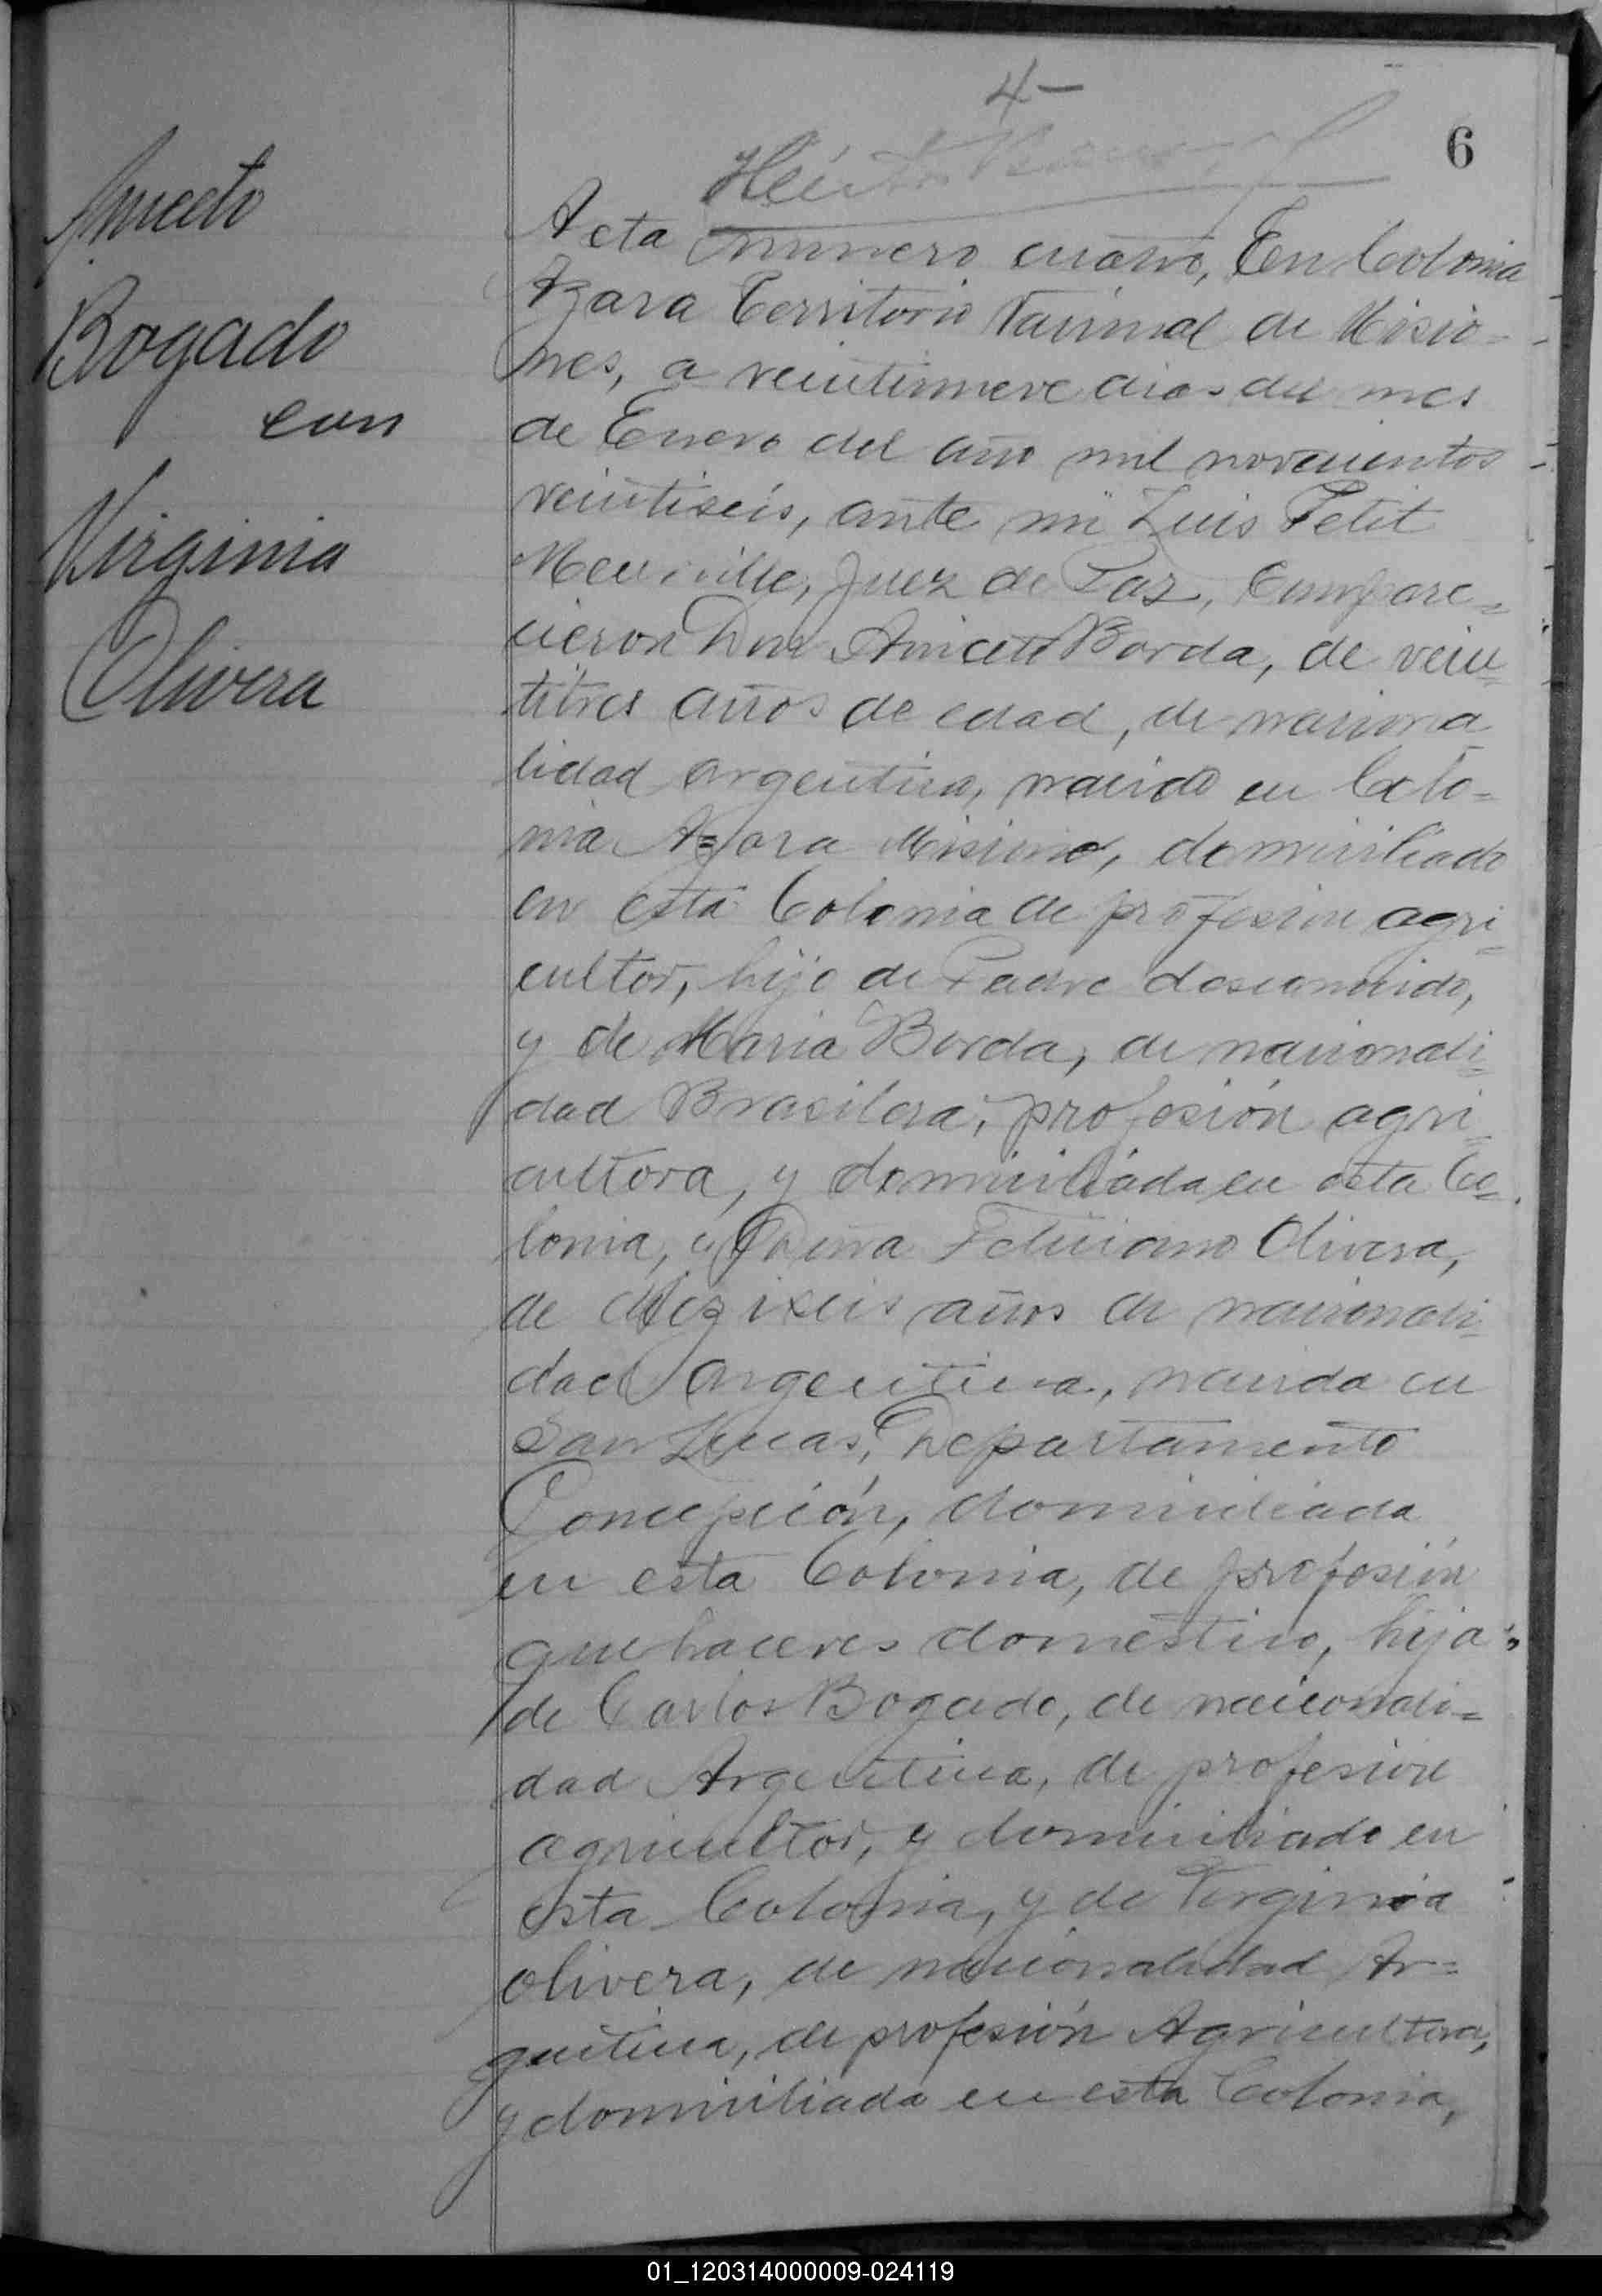 4-
6
Aniceto
Bogado
con
Virginia
Olivera
Acta número cuatro, En Colonia
Azara Territorio Nacional de Misio=
nes, a veintinueve dias del mes
de Enero del año mil novecientos
veintiseis, ante mi Luis Petit
Juez de Paz, Compare=
cieron Don Aniceto Borda, de vein=
titres años de edad, de naciona
lidad argentina, nacido en Colo=
nia Azara Misiones, domiciliado
en esta Colonia de profesion agri=
cultor, hijo de Padre desconocido,
y de Maria Borda, de nacionali=
dad Brasilera, profesión agri=
cultora, y domiciliada en esta Co=
lonia, y Doña Feliciana Olivera,
de diez i seis años de nacionali=
dad argentina, nacida en
San Lucas, Departamento
Concepción, domiciliada
en esta Colonia, de profesión
quehaceres domestico, hija
de Carlos Bogado, de nacionali=
dad Argentina, de profesion
agricultor, y domiciliado en
esta Colonia, y de Virginia
olivera, de nacionalidad Ar=
gentina, de profesión Agricultora,
y domiciliada en esta Colonia,
01_120314000009-024119